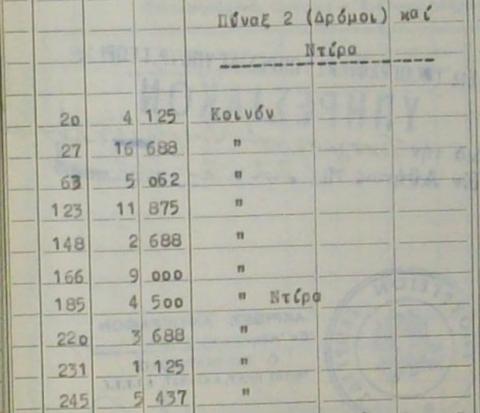 Πίναξ 2 (Δρόμοι) καί
Ντίρα
20 4 125 Κοινόν
27 16 688 "
63 5 062 "
123 11 875 "
148 2 688 "
166 9 000 "
185 4 500 " Ντίρα
220 3 688 "
231 1 125 "
245 5 437 "